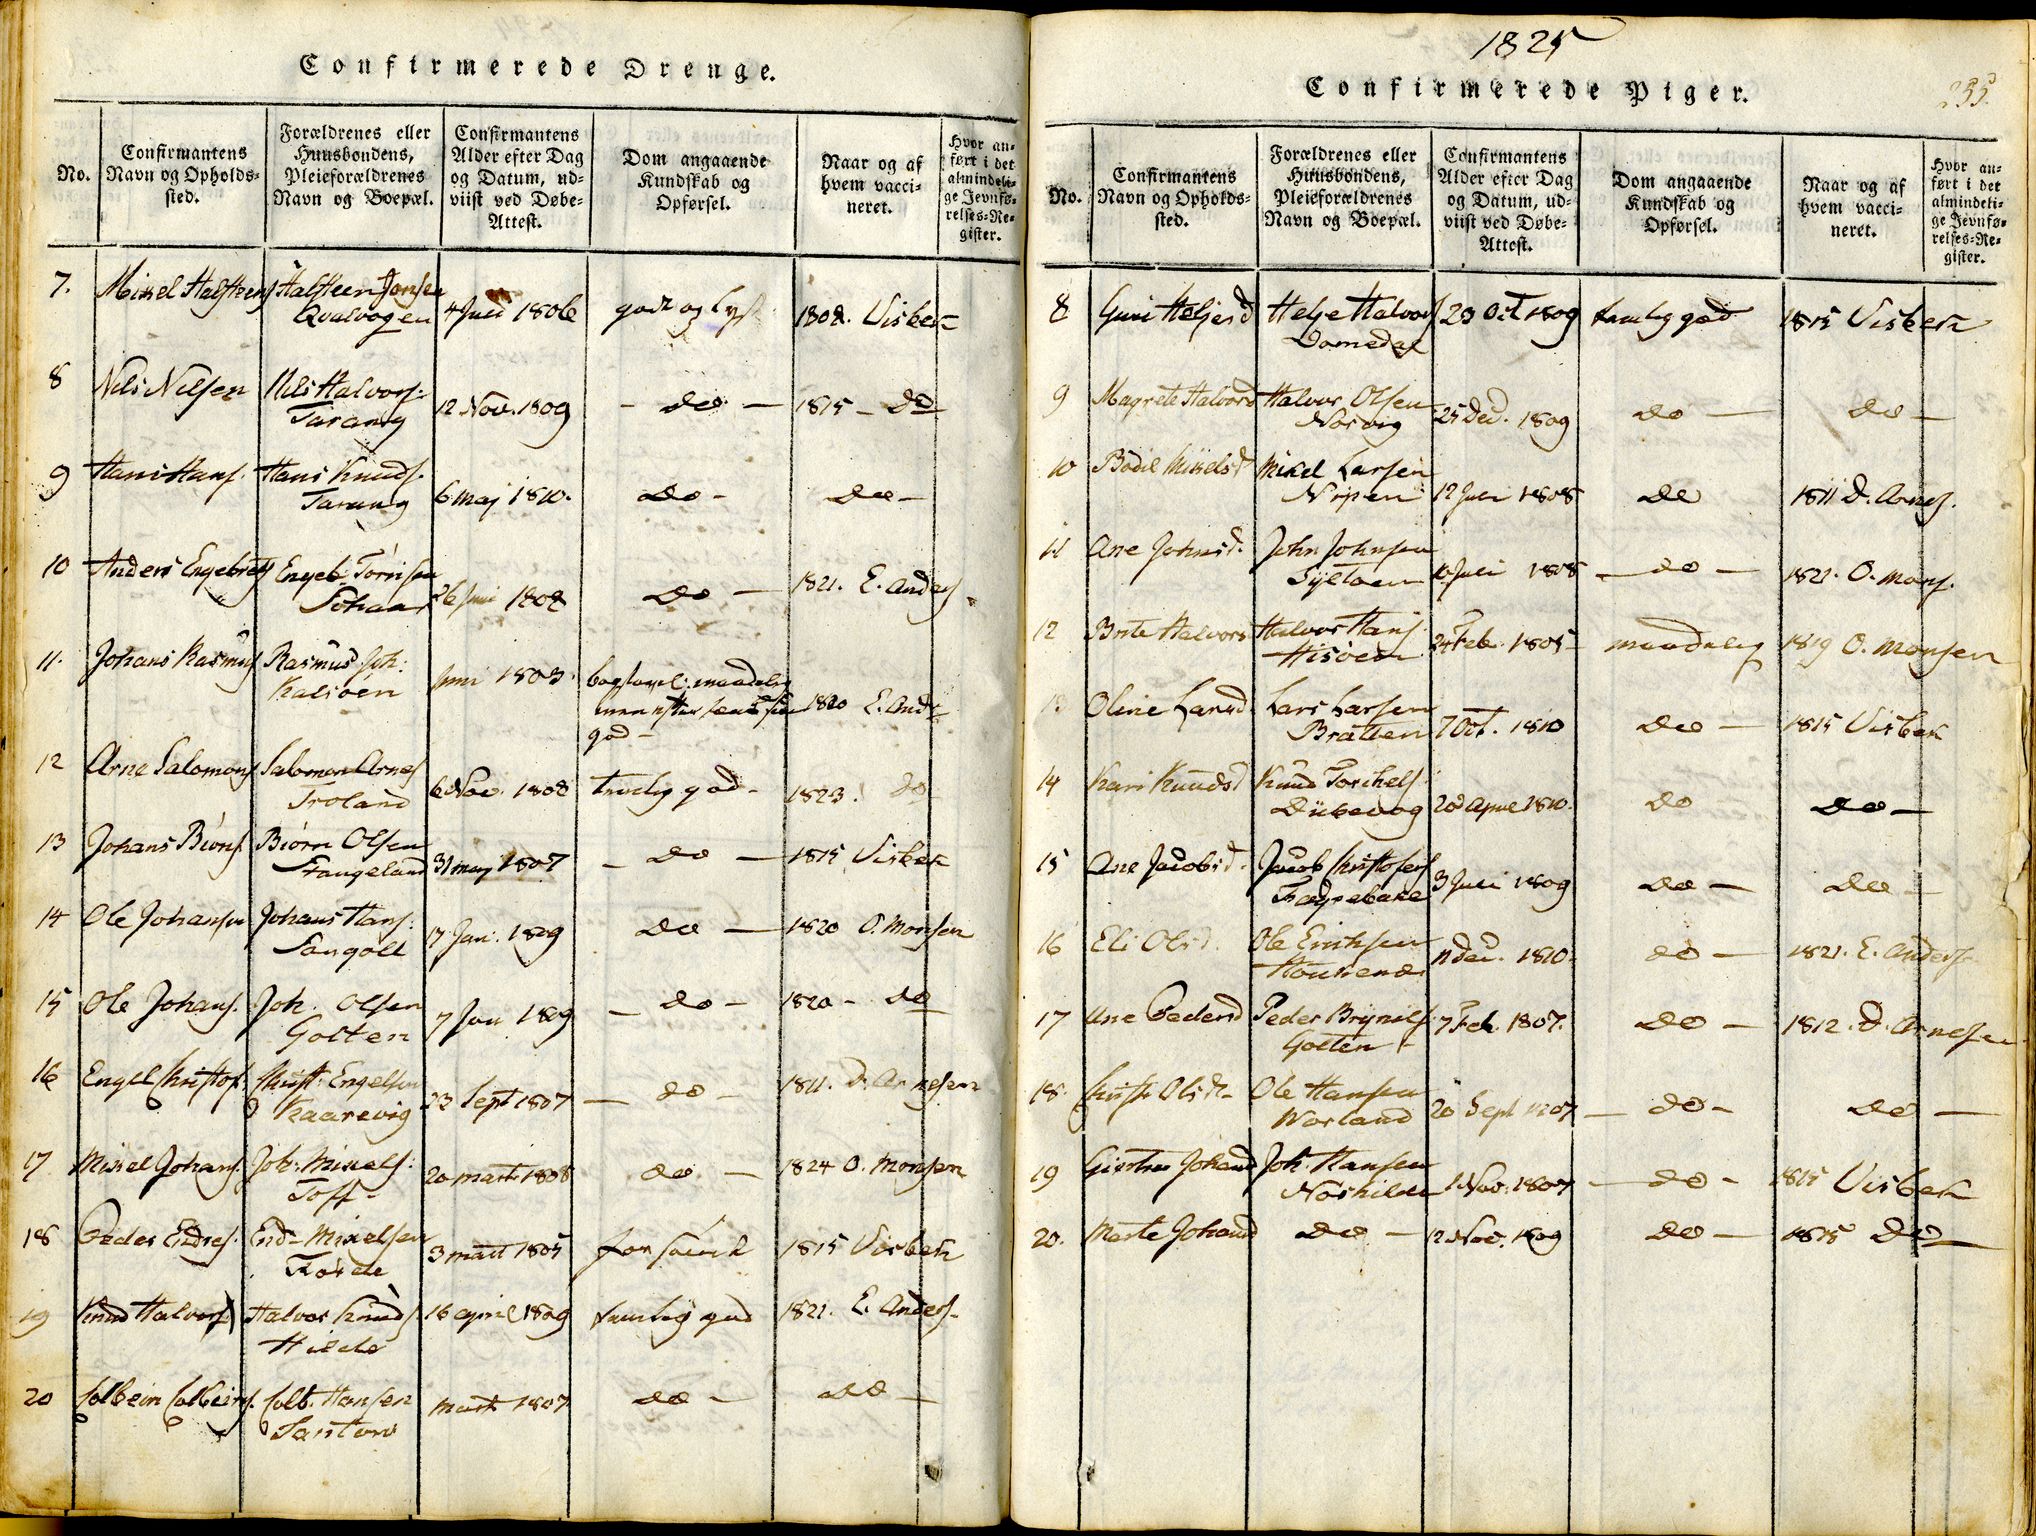 Confirmerede Drenge.
No.
Confirmantens
Navn og Opholds-
sted.
Forældrenes eller
Huusbondens,
Pleieforældrenes
Navn og Boepæl.
Confirmantens
Alder efter Dag
og Datum, ud-
viist ved Døbe-
Attest.
Dom angaaende
Kundskab og
Opførsel.
Naar og af
hvem vacci-
neret.
Hvor an-
ført i det
almindeli-
ge Jevnfø-
relses-Re-
gister.
7. Mikkel Halsteens Halsteen Jonsen 4 Juli 1806 godt og 1808. Visbech
Qvalvogen
8 Nils Nilsen Nils Halvors: 12 Nov. 1809 - do - 1815 - do
Tarang
9 Hans Hans. Hans Knuds. 6 Maj 1810. do - do -
Tarang
10 Anders Engebrets Engeb: Tørrisen 26 Juni 1808 do - 1821. E. Anders
11. Johans Rasmus Rasmus Joh: Juni 1803 maadelig
Kalsøen men god - 1820 E. Ands
12 Arne Salomons Salomon Arnes 6 Nov. 1808 temlig god - 1823. do
Troland
13 Johans Biørns. Biørn Olsen 31 May 1807 - do - 1815 Visbech
Stangeland
14 Ole Johansen Johans Hans: 17 Jan. 1809 do - 1820 O. Monsen
Sangolt
15 Ole Johans. Joh. Olsen 7 Jan 1809 - do - 1820 - do
Golten
16 Engel Christof. Christ: Engelsen 23 Sept 1807 - do - 1811. D. Arnesen
Kaarevig
17 Mikkel Johans. Joh: Mikels: 20 Marts 1808 do - 1824 O. Monsen
Toft -
18 Peder Endres. End - Mikelsen 3 Mart 1805 forsømt 1815 Visbech
Førde
19 Knud Halvors Halvor Knuds 16 April 1809 temlig god 1821. E. Anders-
Hilde
20 Colbein Colbeins. Colb. Hansen Mart 1807 do - do -
1825
Confirmerede Piger.
235.
No.
Confirmantens
Navn og Opholds-
sted.
Forældrenes eller
Huusbondens,
Pleieforældrenes
Navn og Boepæl.
Confirmantens
Alder efter Dag
og Datum, ud-
viist ved Døbe-
Attest.
Dom angaaende
Kundskab og
Opførsel.
Naar og af
hvem vacci-
neret.
Hvor an-
ført i det
almindeli-
ge Jevnfø-
relses-Re-
gister.
8 Guri Heljesd Helje Halvors 23 Oct 1809 temlig god 1815 Visbech
Domedal
9 Magrete Halvorsd Halvor Olsen 25 Dec. 1809 do - do -
Norvig
10 Bodil Mikelsd Mikel Larsen 12 Juli 1808 do 1811 D. Arnes.
Nipen
11 Ane Johnsd. John Johnsen 10 Juli 1808 - do - 1821. O. Mons.
Syltøen
12 Brite Halvors Halvor Hans 24 Feb. 1805 - maadelig 1819 O. Monsen
Hisøen
Oline Larsd. Lars Larsen 7 Oct. 1810 do - 1815 Visbech
Bratten
14 Kari Knudsd Knud Torikels 20 April 1810. do do -
Dubevog
15 Ane Jacobsd. Jacob Christofers 3 Juli 1809 do - do -
Fagrebake
16 Eli Olsd. Ole Erichsen 11 Dec. 1810 do - 1821. E. Anders.
17 Ane Pedersd Peder Brynils 7 Feb. 1807. do - 1812. D. Arnesen
Golten -
18. Christi Olsd. Ole Hansen 20 Sept 1807 - do - do -
Worland
19 Giertru Johansd Joh. Hansen 1 Nov. 1807 - do - 1815 Visbech
Nøskilen
20. Marte Johansd do - 12 Nov. 1809 do - 1815 do